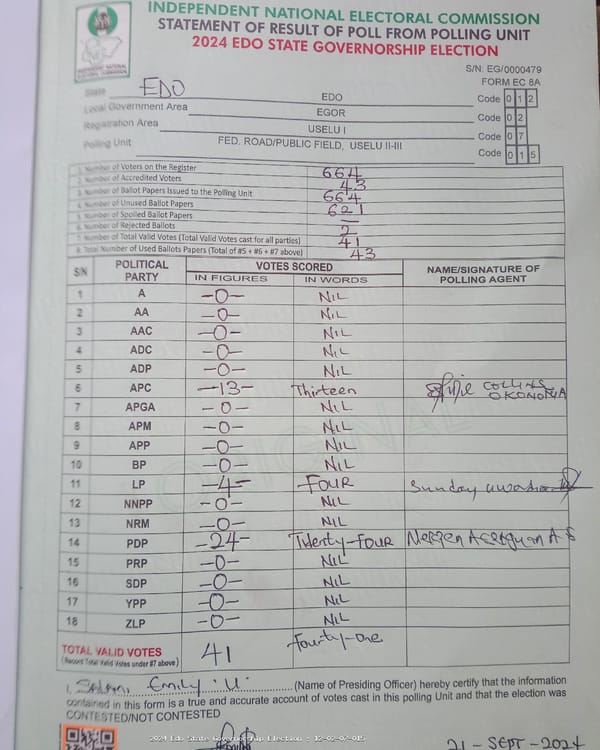 INDEPENDENT NATIONAL ELECTORAL COMMISSION
STATEMENT OF RESULT OF POLL FROM POLLING UNIT
2024 EDO STATE GOVERNORSHIP ELECTION
INDEPENDENT NATIONAL ELECTORAL COMMISSION
S/N: EG/0000479
FORM EC 8A
State EDO EDO Code 0 1 2
Local Government Area EGOR Code 0 2
Registration Area USELU I Code 0 7
Polling Unit FED. ROAD/PUBLIC FIELD, USELU II-III Code 0 1 5
1. Number of Voters on the Register 664
2. Number of Accredited Voters 43
3. Number of Ballot Papers Issued to the Polling Unit 664
4. Number of Unused Ballot Papers 621
5. Number of Spoiled Ballot Papers —
6. Number of Rejected Ballots 2
7. Number of Total Valid Votes (Total Valid Votes cast for all parties) 41
8. Total Number of Used Ballots Papers (Total of #5 + #6 + #7 above) 43
S/N POLITICAL PARTY VOTES SCORED NAME/SIGNATURE OF POLLING AGENT
IN FIGURES IN WORDS
1 A -0- NIL
2 AA -0- NIL
3 AAC -0- NIL
4 ADC -0- NIL
5 ADP -0- NIL
6 APC -13- Thirteen COLLINS
7 APGA -0- NIL
8 APM -0- NIL
9 APP -0- NIL
10 BP -0- NIL
11 LP -4- FOUR Sunday
12 NNPP -0- NIL
13 NRM -0- NIL
14 PDP -24- Twenty-FOUR
15 PRP -0- NIL
16 SDP -0- NIL
17 YPP -0- NIL
18 ZLP -0- NIL
TOTAL VALID VOTES 41 Fourty-one
(Record Total Valid Votes under #7 above)
I, Emily .U. (Name of Presiding Officer) hereby certify that the information
contained in this form is a true and accurate account of votes cast in this polling Unit and that the election was
CONTESTED/NOT CONTESTED
2024 Edo State Governorship Election - 12-02-07-015
21 - SEPT - 2024